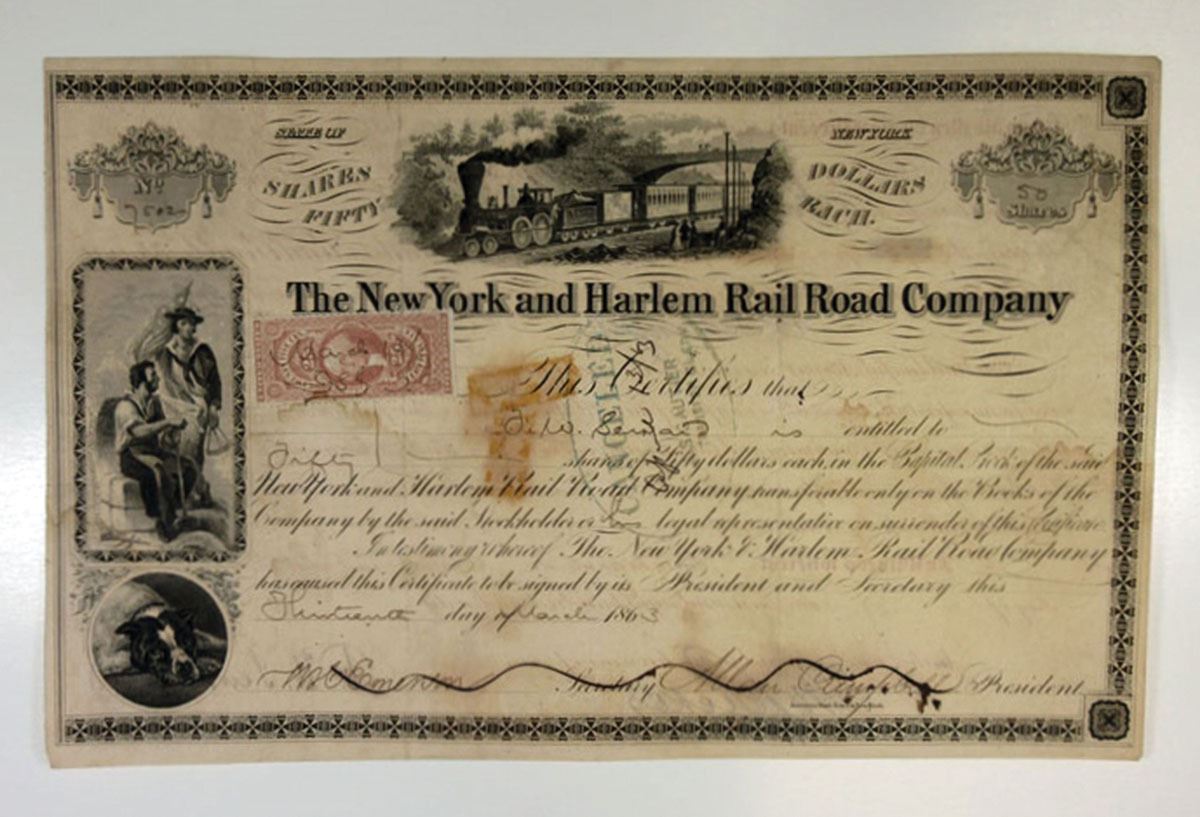 STATE OF NEW YORK
No 7502
SHARES FIFTY DOLLARS EACH.
50 Shares
The New York and Harlem Rail Road Company
CANCELLED
This Certifies that
is entitled to
Fifty shares of fifty dollars each, in the Capital Stock of the said
New York and Harlem Rail Road Company, transferable only on the Books of the
Company by the said Stockholder or legal representative on surrender of this Certificate
In testimony whereof The New York & Harlem Rail Road Company
has caused this Certificate to be signed by its President and Secretary this
Thirteenth day of March 1863
Secretary Allan Campbell President